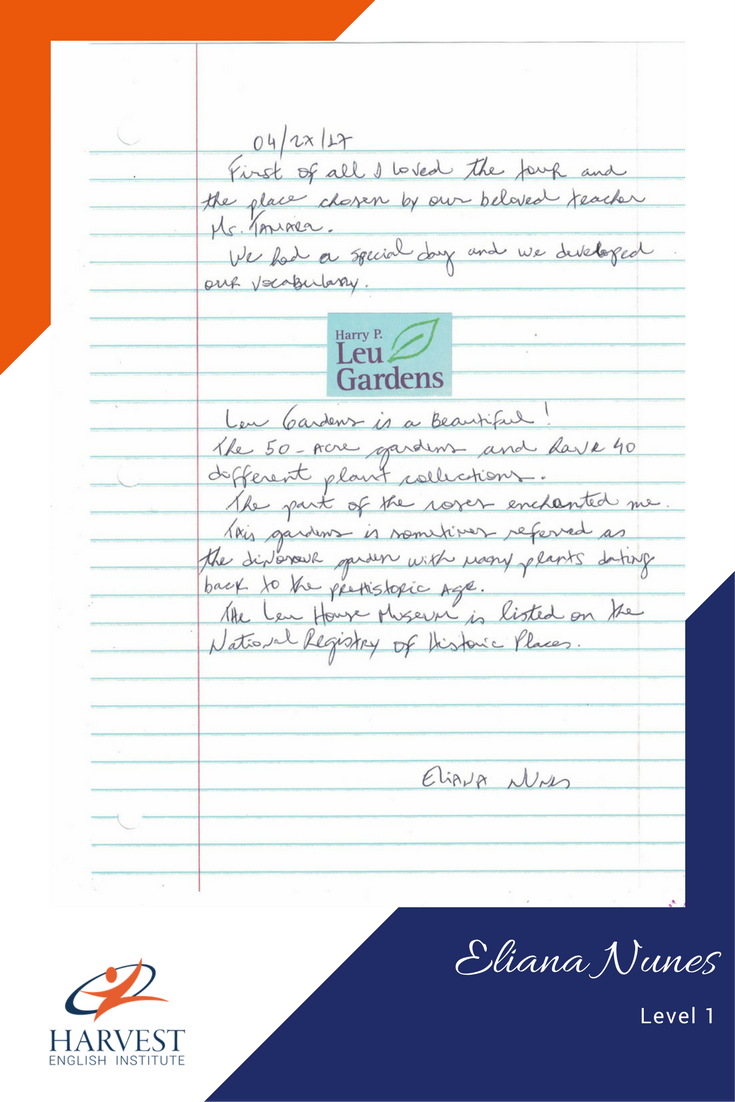 04/27/17
First of all I loved the tour and
the place chosen by our beloved teacher
Ms. TAMARA.
We had a special day and we developed
our vocabulary.
Harry P.
Leu
Gardens
Leu Gardens is a Beautiful!
The 50-Acre gardens and have 40
different plant collections.
The part of the roses enchanted me.
This gardens is sometimes referred as
the dinosaur garden with many plants dating
back to the prehistoric Age.
The Leu House Museum is listed on the
National Registry of Historic Places.
ELIANA NUNES
Eliana Nunes
Level 1
HARVEST
ENGLISH INSTITUTE